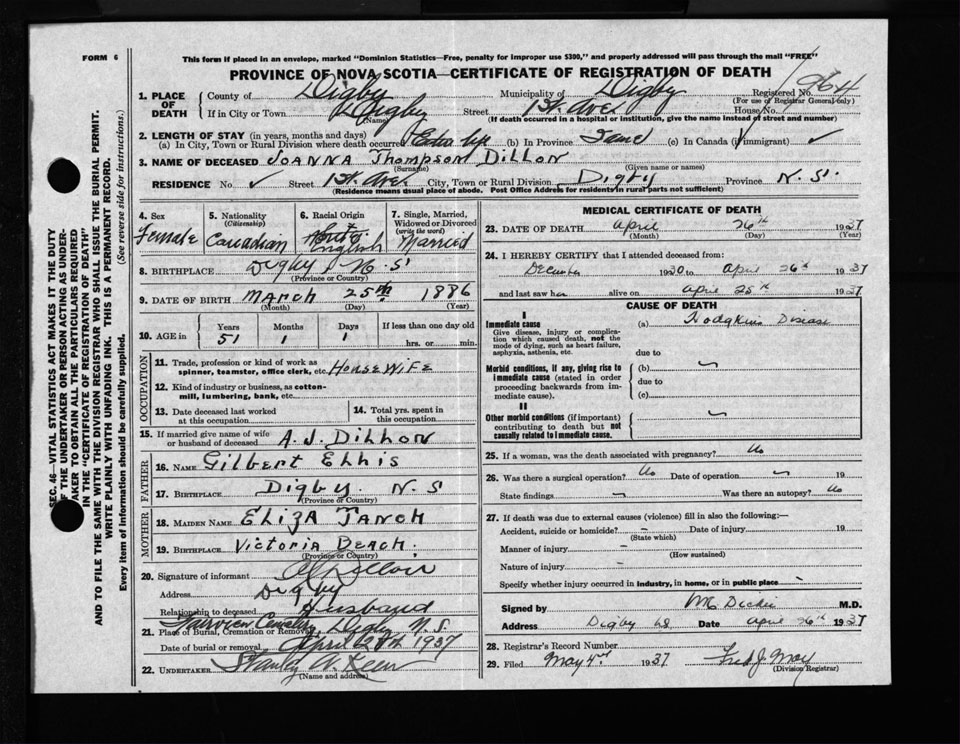 FORM 6
This form if placed in an envelope, marked "Dominion Statistics—Free, penalty for improper use $300," and properly addressed will pass through the mail "FREE"
PROVINCE OF NOVA SCOTIA—CERTIFICATE OF REGISTRATION OF DEATH
964
1. PLACE OF DEATH
County of Digby Municipality of Digby Registered No.
(For use of Registrar General only)
If in City or Town Digby Street 1st. Ave. House No.
(Name) (If death occurred in a hospital or institution, give the name instead of street and number)
2. LENGTH OF STAY (in years, months and days)
(a) In City, Town or Rural Division where death occurred (b) In Province Same (c) In Canada (if immigrant) ✓
3. NAME OF DECEASED JOANNA Thompson DILLON
(Surname) (Given name or names)
RESIDENCE No. ✓ Street 1st. Ave City, Town or Rural Division Digby Province N. S.
(Residence means usual place of abode. Post Office Address for residents in rural parts not sufficient)
4. Sex Female
5. Nationality (Citizenship) Canadian
6. Racial Origin English
7. Single, Married, Widowed or Divorced (write the word) Married
8. BIRTHPLACE Digby, N. S.
(Province or Country)
9. DATE OF BIRTH March 25th 1886
(Month) (Day) (Year)
10. AGE in Years 51 Months 1 Days 1 If less than one day old hrs. or min.
OCCUPATION
11. Trade, profession or kind of work as spinner, teamster, office clerk, etc. HouseWife
12. Kind of industry or business, as cotton-mill, lumbering, bank, etc.
13. Date deceased last worked at this occupation
14. Total yrs. spent in this occupation
15. If married give name of wife or husband of deceased A. J. Dillon
FATHER
16. NAME Gilbert Ellis
17. BIRTHPLACE Digby N. S
(Province or Country)
MOTHER
18. MAIDEN NAME Eliza
19. BIRTHPLACE Victoria Beach.
(Province or Country)
20. Signature of informant A J Dillon
Address Digby
Relationship to deceased Husband
21. Place of Burial, Cremation or Removal Fairview Cemetery, Digby N. S.
Date of burial or removal April 28th 1937
22. UNDERTAKER Stanley W.
(Name and address)
MEDICAL CERTIFICATE OF DEATH
23. DATE OF DEATH April 26th 1937
(Month) (Day) (Year)
24. I HEREBY CERTIFY that I attended deceased from:
December 1930 to April 26th 1937
and last saw her alive on April 25th 1937
CAUSE OF DEATH
I
Immediate cause
Give disease, injury or complication which caused death, not the mode of dying, such as heart failure, asphyxia, asthenia, etc.
(a) Hodgkins Disease
due to
Morbid conditions, if any, giving rise to immediate cause (stated in order proceeding backwards from immediate cause).
(b)
due to
(c)
II
Other morbid conditions (if important) contributing to death but not causally related to immediate cause.
25. If a woman, was the death associated with pregnancy? No
26. Was there a surgical operation? No Date of operation 19
State findings Was there an autopsy? No
27. If death was due to external causes (violence) fill in also the following:—
Accident, suicide or homicide? Date of injury 19
(State which)
Manner of injury
(How sustained)
Nature of injury
Specify whether injury occurred in industry, in home, or in public place
Signed by Dickie M.D.
Address Digby NS Date April 26th 1937
28. Registrar's Record Number
29. Filed May 4th 1937 Fred J. May
(Division Registrar)
SEC. 46—VITAL STATISTICS ACT MAKES IT THE DUTY
OF THE UNDERTAKER OR PERSON ACTING AS UNDERTAKER TO OBTAIN ALL THE PARTICULARS REQUIRED
IN THE "CERTIFICATE OF REGISTRATION OF DEATH"
AND TO FILE THE SAME WITH THE DIVISION REGISTRAR WHO SHALL ISSUE THE BURIAL PERMIT.
WRITE PLAINLY WITH UNFADING INK. THIS IS A PERMANENT RECORD.
Every item of information should be carefully supplied. (See reverse side for instructions.)